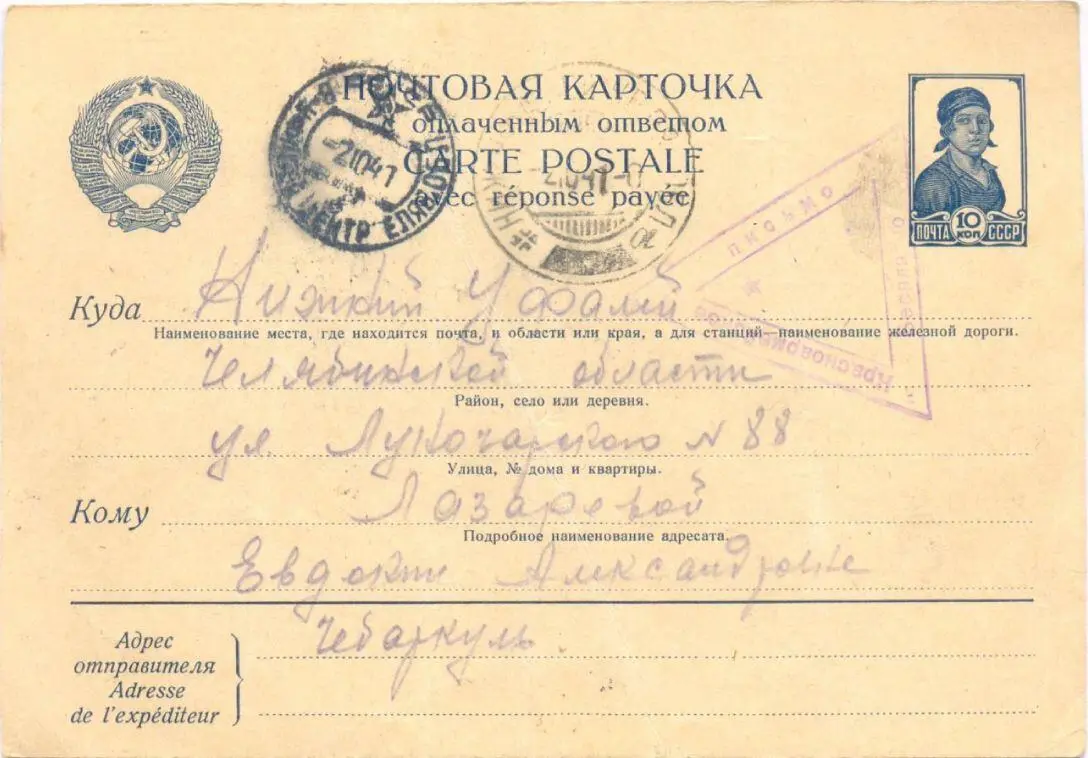 ПОЧТОВАЯ КАРТОЧКА
оплаченным ответом
CARTE POSTALE
avec réponse payée
ПОЧТА 10 КОП СССР
-21041
21041-0
письмо
Красноармейское
Куда Нижний Уфалей
Наименование места, где находится почта, и области или края, а для станций—наименование железной дороги.
Челябинской области
Район, село или деревня.
ул Луночарского N 88
Улица, № дома и квартиры.
Кому Лазаревой
Подробное наименование адресата.
Евдокии Александровне
Чебаркуль
Адрес
отправителя
Adresse
de l'expéditeur